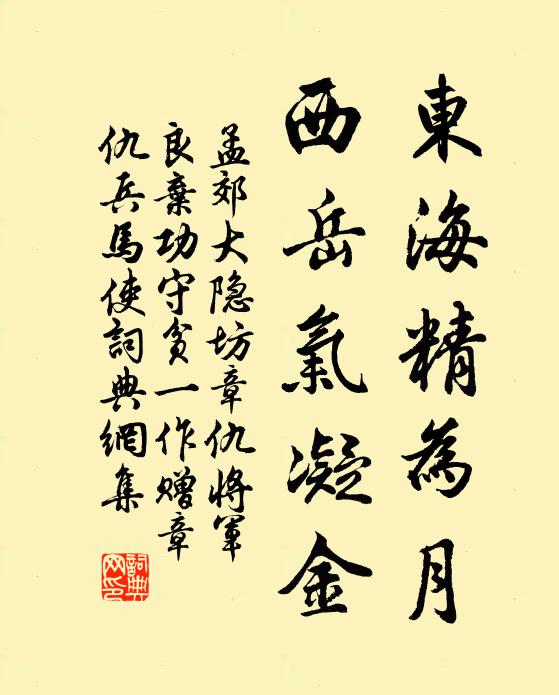 東海精為月
西岳氣凝金
孟郊大隐坊章仇將軍
良棄功守貧一作贈章
仇兵馬使詞典網集
詞典网印